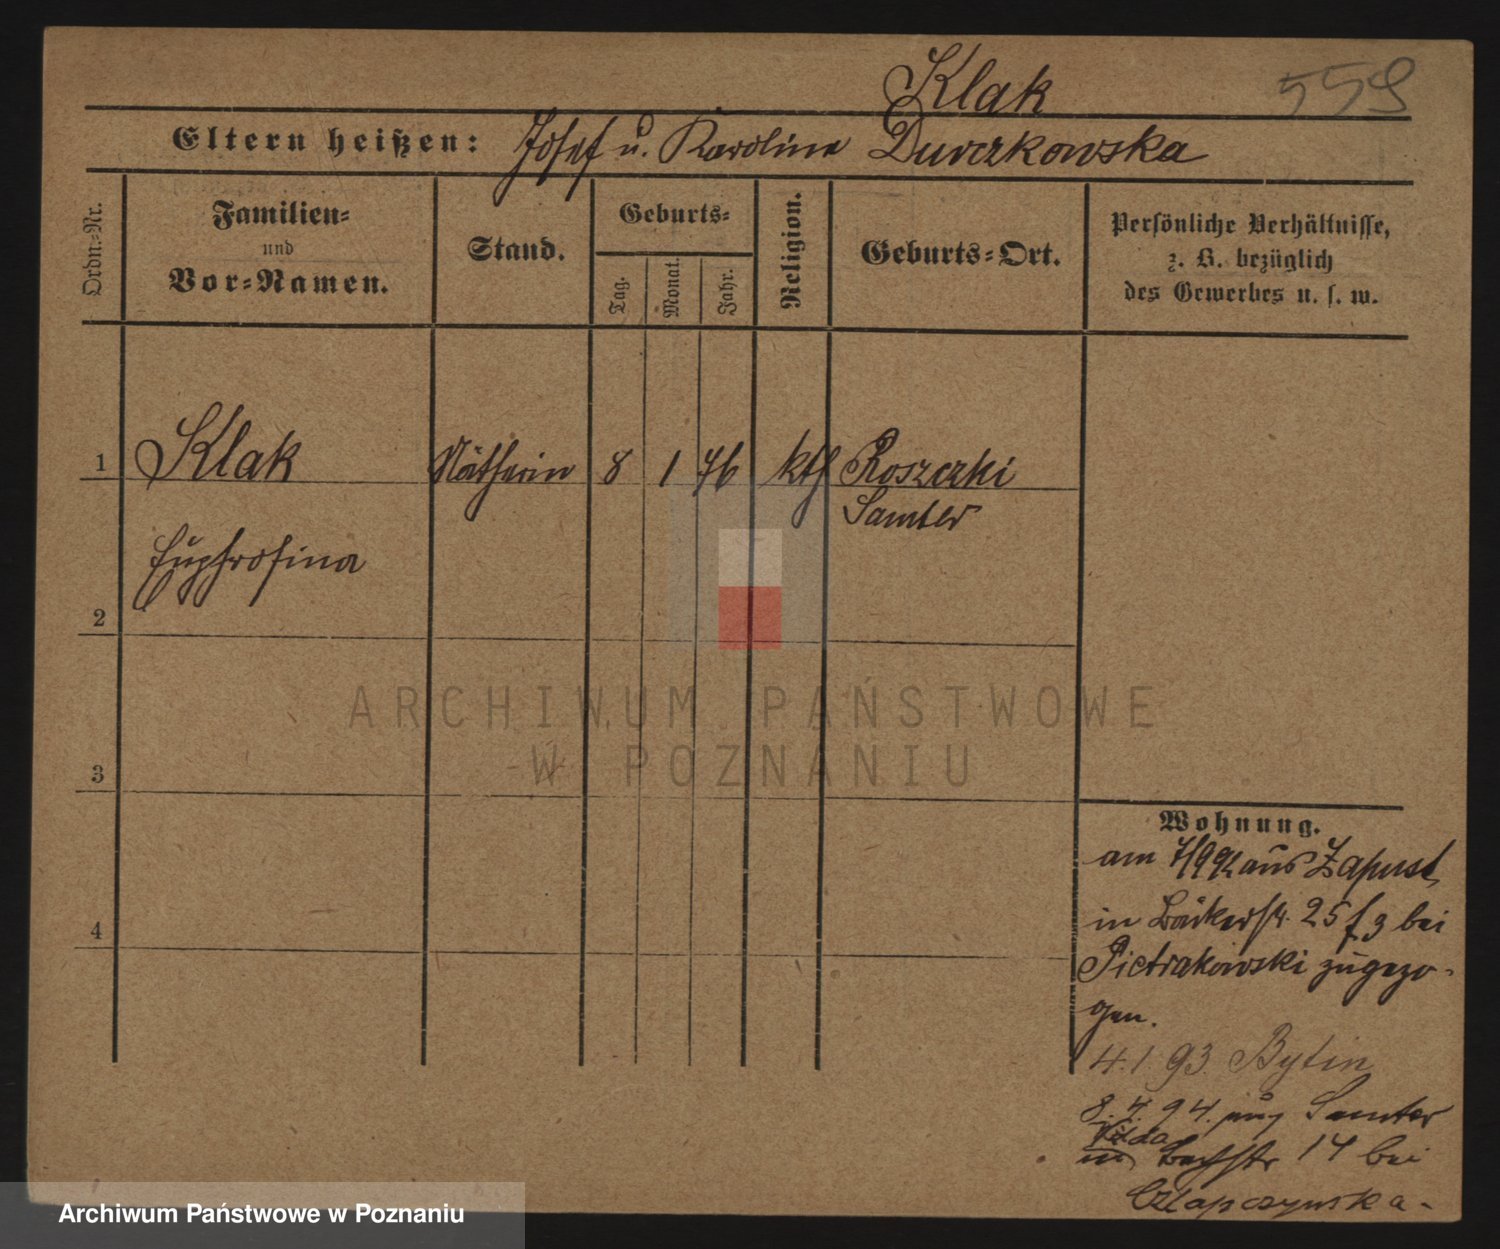 Klak 559
Eltern heißen: Josef u. Karolina Durczkowska
Ordn.-Nr.
Familien-
und
Vor-Namen.
Stand.
Geburts-
Tag.
Monat.
Jahr.
Religion.
Geburts-Ort.
Persönliche Verhältnisse,
z. B. bezüglich
des Gewerbes u. s. w.
1 Klak Nätherin 8 1 76 kth Roszczki
Samter
Euphrosina
2
3
4
ARCHIWUM PAŃSTWOWE
W POZNANIU
Wohnung.
am 7/9 92 aus Zapust
in Bäckerstr. 25 f 3 bei
Pietrakowski zugezo-
gen.
4.1.93. Bytin
8.4.94. Samter
Wilda
in 14 bei
Człapczynska.
Archiwum Państwowe w Poznaniu